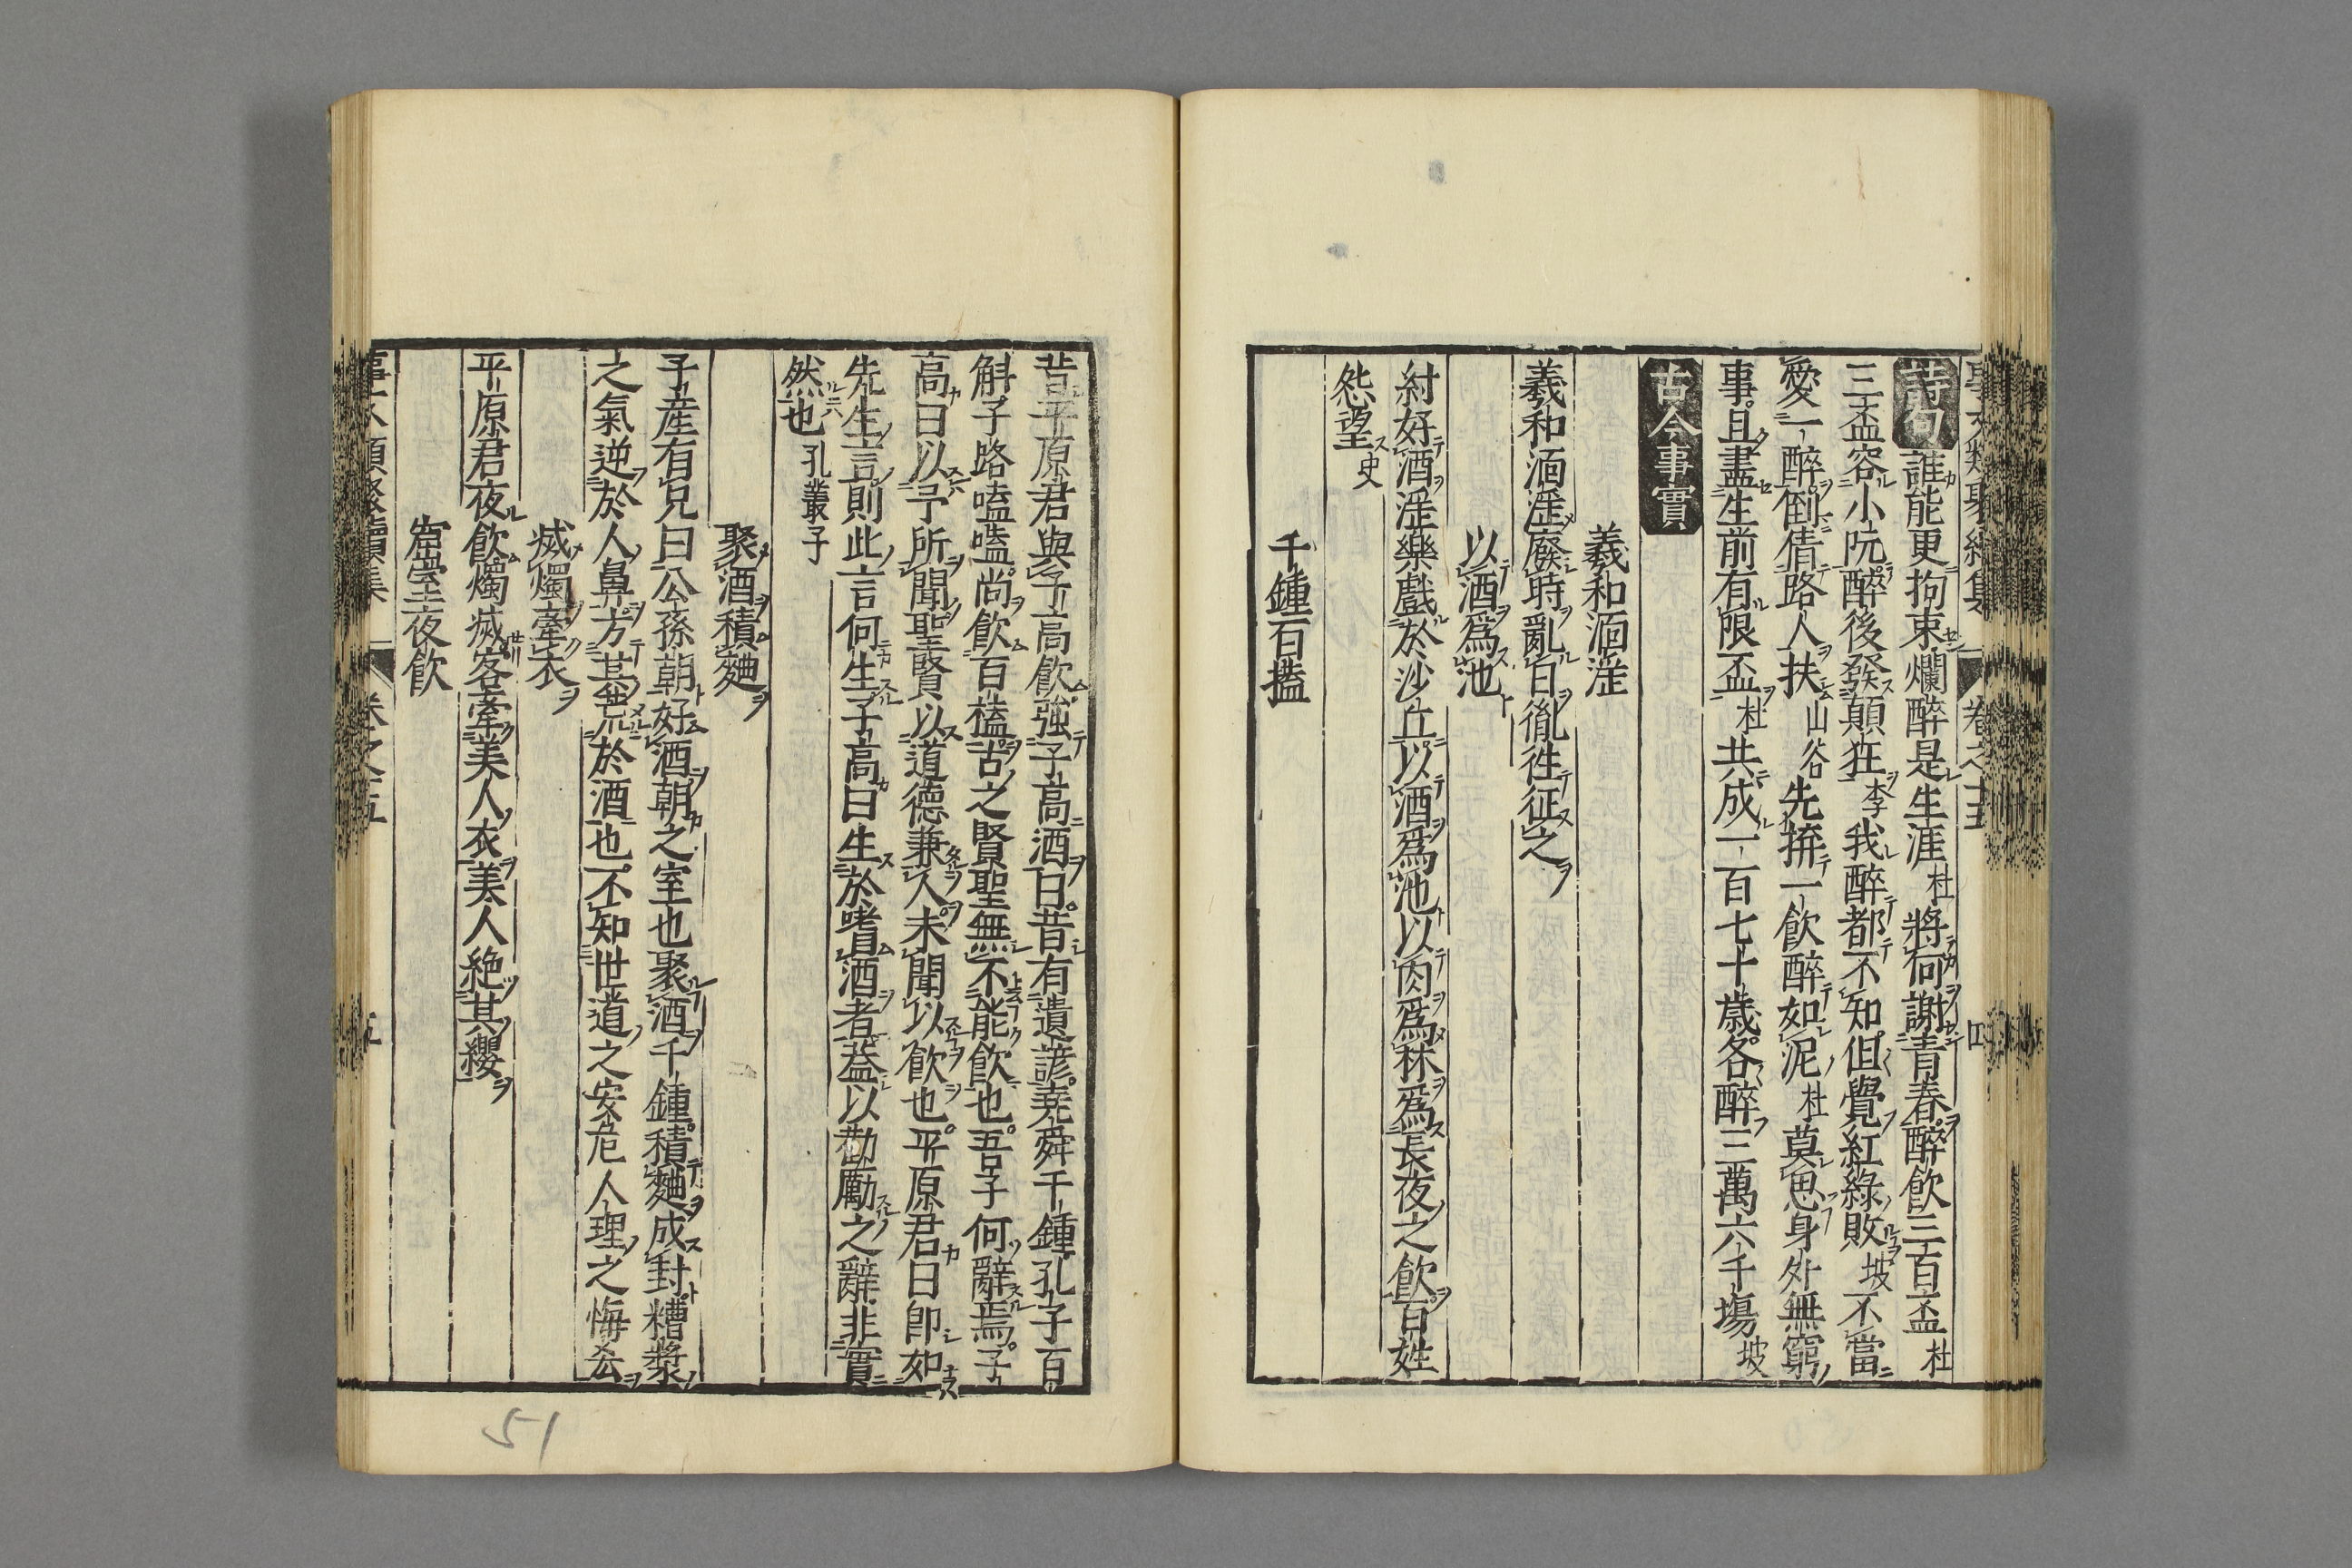 詩句 誰能更拘束爛醉是生涯 杜 將何謝青春醉飲三百盃 杜
三盃容小阮醉後發顛狂 李 我醉都不知但覺紅綠敗 坡 不當
愛一醉倒倩路人扶 山谷 先拚一飲醉如泥 杜 莫思身外無窮
事且盡生前有限盃 杜 共成一百七十歲各醉三萬六千場 坡
古今事實
羲和湎淫
羲和湎淫廢時亂日胤徃征之
以酒爲池
紂好酒淫樂戲於沙丘以酒爲池以肉爲林爲長夜之飲百姓
怨望 史
千鍾百榼
昔平原君與子高飲強子高酒曰昔有遺諺堯舜千鍾孔子百
斛子路嗑嗑尚飲百榼古之賢聖無不能飲也吾子何辭焉子
高曰以予所聞聖賢以道德兼人未聞以飲也平原君曰卽如
先生言則此言何生子高曰生於嗜酒者蓋以勸勵之辭非實
然也 孔叢子
聚酒積麯
子產有兄曰公孫朝好酒朝之室也聚酒千鍾積麯成封糟漿
之氣逆於人鼻方其荒於酒也不知世道之安危人理之悔吝
滅燭牽衣
平原君夜飲燭滅客牽美人衣美人絶其纓
窟室夜飲
事文類聚續集 卷之十五 五